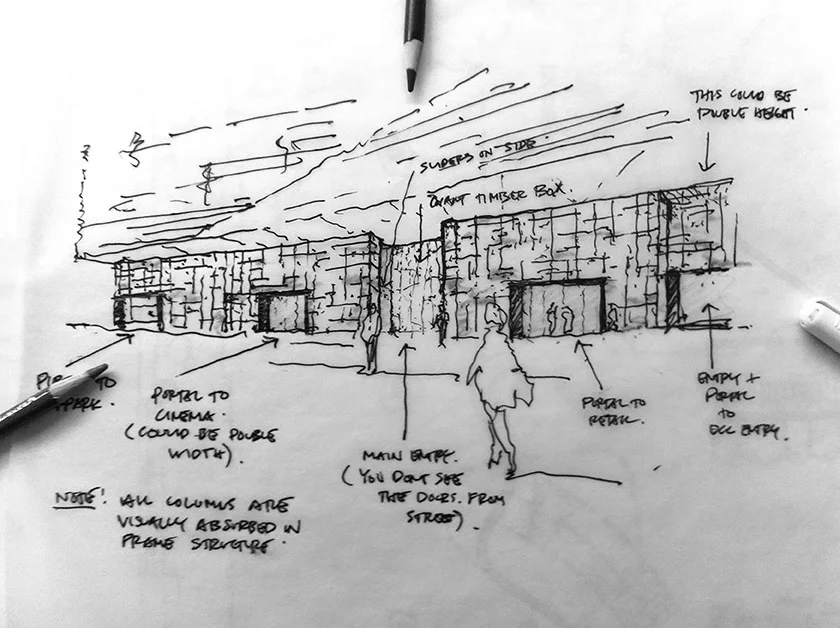 THIS COULD BE
DOUBLE HEIGHT.
SLIDERS ON SIDE.
GIANT TIMBER BOX.
TO
PARK.
PORTAL TO
CINEMA.
(COULD BE DOUBLE
WIDTH).
MAIN ENTRY.
(YOU DONT SEE
THE DOORS. FROM
STREET).
PORTAL TO
RETAIL.
ENTRY +
PORTAL
TO
ENTRY.
NOTE! ALL COLUMNS ARE
VISUALLY ABSORBED IN
FRAME STRUCTURE.